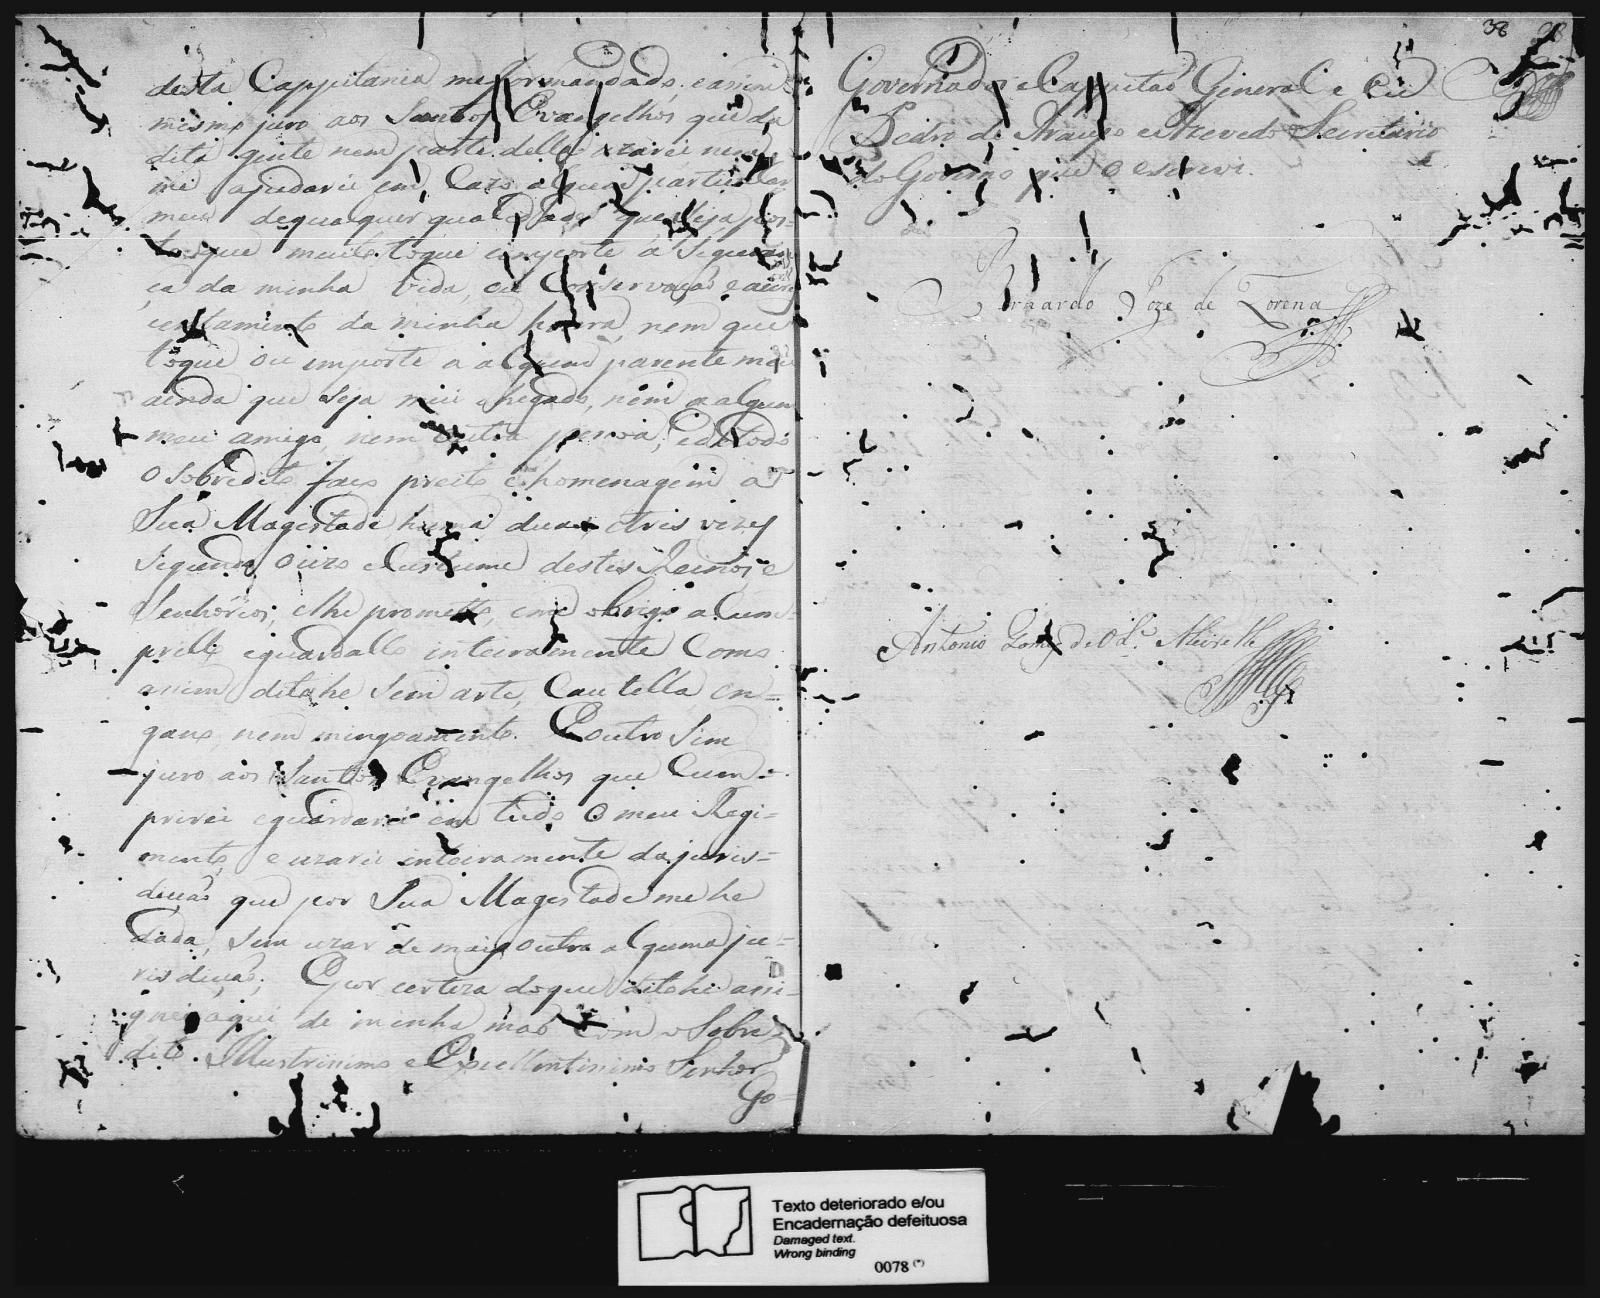 desta Cappitania me for mandado, e assim
mesmo juro aos Santos Evangelhos que da
dita gente nem parte della uzarei nem
me ajudarei em Cazo algum particular
meu dequalquer qualidade que seja pos-
toque muito toque eimporte a Seguran-
ça da minha Vida, ou Conservação eacres-
centamento da minha honra, nem que
toque ou importe a algum parente meu
ainda que seja meu chegado, nem a algum
meu amigo, nem outra pessoa; Ede todo
o sobredito faço preito e homenagem a
Sua Magestade huma duas, etres vezes
segundo ouzo eCustume destes Reinos e
Senhorios, elhe prometto, eme obrigo aCum-
prillo eguardallo inteiramente Como
assim ditohe Sem arte, Cautella en-
gano, nem mingoamento. Eoutro Sim
juro aos Santos Evangelhos que Cum=
prirei eguardarei em tudo o meu Regi=
mento, euzarei inteiramente dajuris=
dição que por Sua Magestade me he
dada, sem uzar de mais outra alguma ju=
risdição; Epor certeza doque ditohe assi-
gnei aqui de minha mão Com o Sobre
dito Illustrissimo eExcellentissimo Senhor
Go-
38
Governador eCappitão General e Eu
Pedro de Araujo eAzevedo Secretario
do Governo que o escrevi.
Bernardo Joze de Lorena
Antonio Gomes de Olª Meirelles
Texto deteriorado e/ou
Encadernação defeituosa
Damaged text.
Wrong binding
0078 (*)